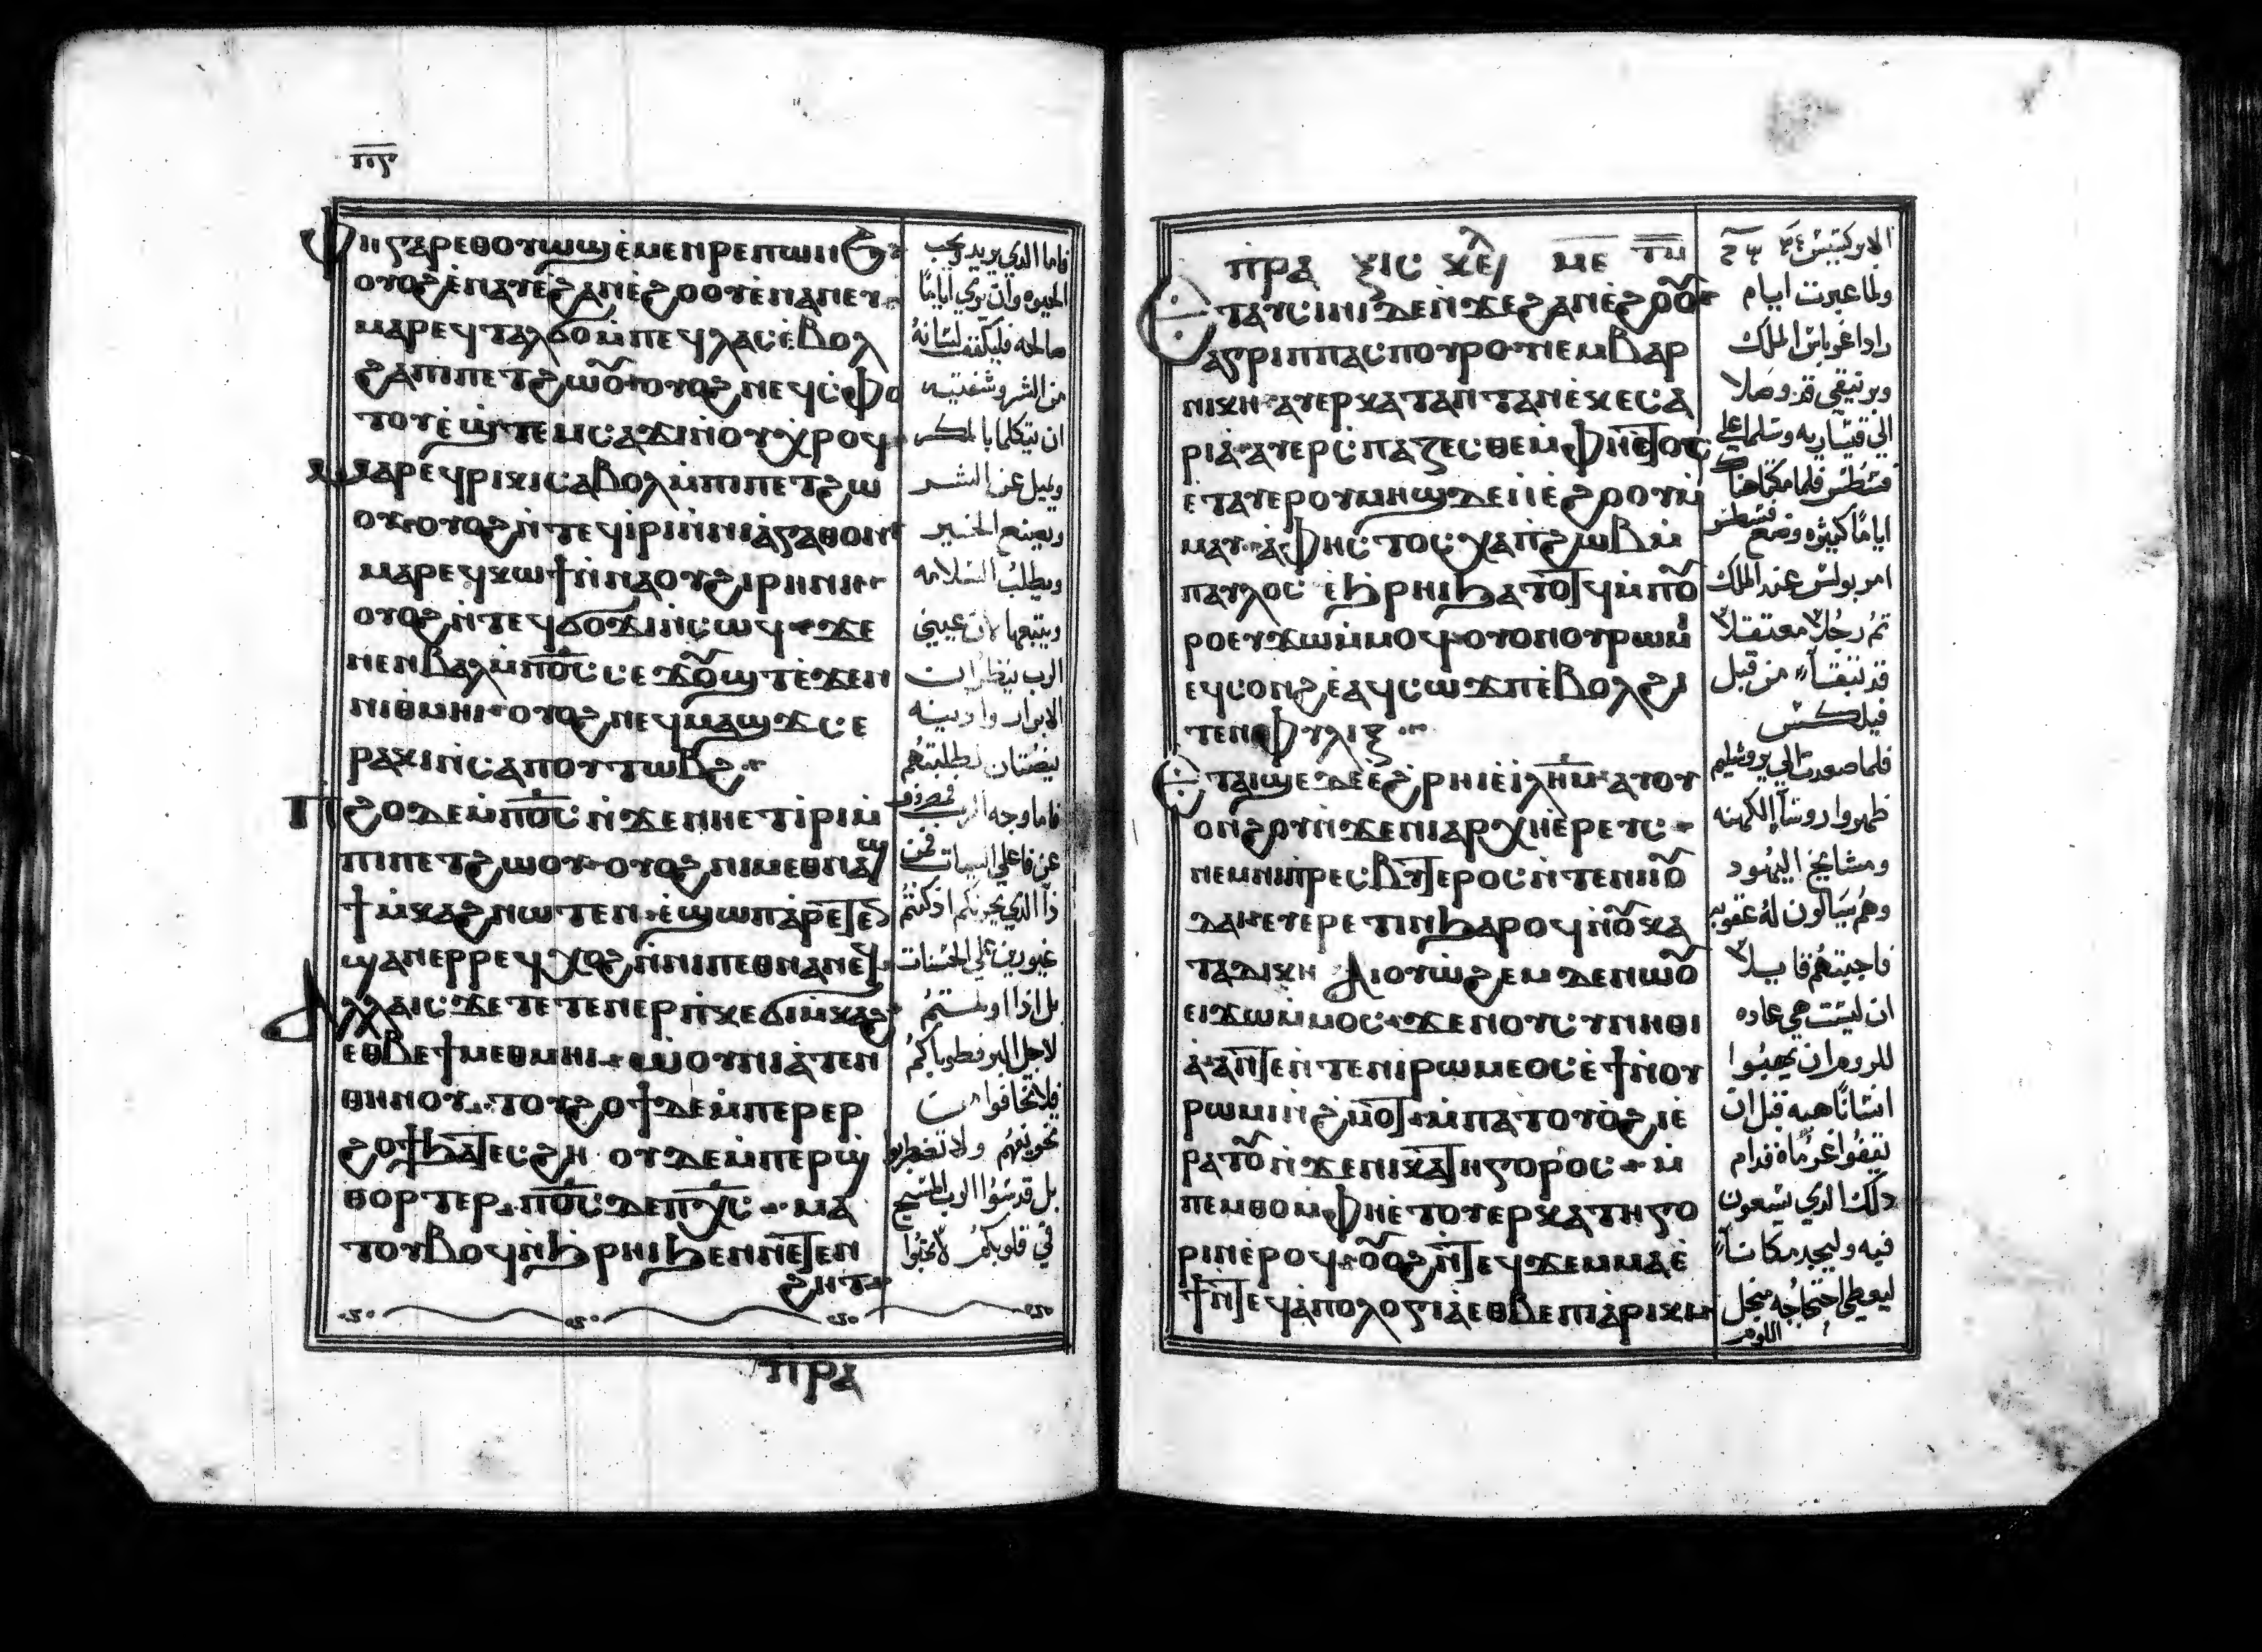 ⲫⲏⲅⲁⲣⲉⲑⲟⲩⲱϣⲉ̀ⲙⲉⲛⲣⲉⲡⲱⲛϧ
ⲟⲩⲟϩⲉ̀ⲛⲁⲩⲉ̀ϩⲁⲛⲉ̀ϩⲟⲟⲩⲉ̀ⲛⲁⲛⲉⲩ
ⲙⲁⲣⲉϥⲧⲁⲗϭⲟⲙ̀ⲡⲉϥⲗⲁⲥⲉ̀ⲃⲟⲗ
ϩⲁⲡⲓⲡⲉⲧϩⲱⲟ̅ⲟⲩⲟϩⲛⲉϥⲥ̀ⲫⲟ
ⲧⲟⲩⲉ̀ϣⲧⲉⲙⲥⲁϫⲓⲛ̀ⲟⲩⲭⲣⲟϥ
ⲙⲁⲣⲉϥⲣⲓⲕⲓⲥⲁⲃⲟⲗⲙ̀ⲡⲓⲡⲉⲧϩⲱ
ⲟⲩ ⲟⲩⲟϩⲛ̀ⲧⲉϥⲓⲣⲓⲛ̀ⲛⲓⲁ̀ⲅⲁⲑⲟⲛ
ⲙⲁⲣⲉϥⲕⲱϯⲛ̀ⲛⲁⲟⲩϩⲓⲣⲏⲛⲓ
ⲟⲩⲟϩⲛ̀ⲧⲉϥϭⲟϫⲓⲛ̀ⲥⲱϥ ϫⲉ
ⲛⲉⲛⲃⲁⲗⲙ̀ⲡⲟ̅ⲥ̅ⲥⲉϫⲟ̅ϣⲧⲉ̀ϫⲉⲛ
ⲛⲓⲑⲙⲏⲓ ⲟⲩⲟϩⲛⲉϥⲙⲁϣϫⲥⲉ
ⲣⲁⲕⲓⲛ̀ⲥⲁⲡⲟⲩⲧⲱⲃϩ
ⲡϩⲟⲇⲉⲙ̀ⲡⲟ̅ⲥ̅ⲛ̀ϫⲉⲛⲏⲉⲧⲓⲣⲓⲙ̀
ⲡⲓⲡⲉⲧϩⲱⲟⲩ ⲟⲩⲟϩⲛⲓⲙⲉⲑⲛⲁϣ
ϯⲙ̀ⲕⲁϩⲛⲱⲧⲉⲛ ⲉ̀ϣⲱⲡⲁ̀ⲣⲉⲧⲉ
ϣⲁⲛⲉⲣⲣⲉϥⲭⲟϩⲛ̀ⲛⲓⲡⲉⲑⲛⲁⲛⲉϥ
ⲁⲗⲗⲁⲓⲥϫⲉⲧⲉⲧⲉⲛⲉⲣⲡ̀ⲕⲉϭⲓⲙ̀ⲕⲁϩ
ⲉⲑⲃⲉϯⲙⲉⲑⲙⲏⲓ ⲱ̀ⲟⲩⲛⲓⲁ̀ⲧⲉⲛ
ⲑⲏⲛⲟⲩ ⲧⲟⲩϩⲟϯⲇⲉⲙ̀ⲡⲉⲣⲉⲣ
ϩⲟϯϧⲁⲧⲉⲥϩⲏ ⲟⲩⲇⲉⲙ̀ⲡⲉⲣϣ
ⲑⲟⲣⲧⲉⲣ ⲡⲟ̅ⲥ̅ⲇⲉⲡⲭ̅ⲥ̅ ⲙⲁ
ⲧⲟⲩⲃⲟϥⲛ̀ϧⲣⲏⲓϧⲉⲛⲛⲉⲧⲉⲛ
ϩⲏⲧ
ⲡⲣⲁ
فاما الذي يريد يحب
الحيوه وان يري اياما
صالحه فليكفف لسانه
من الشر وشفتيه
ان يتكلما بالمكر
ويميل عن الشر
ويصنع الخير
ويطلب السلامه
ويتبعها لان عيني
الرب ينظران
الابرار واذنيه
ينصتان لطلبتهم
فاما وجه الرب
عن فاعلي السيات فمن
ذا الذي يحزنكم اذ كنتم
غيورين علي الحسنات
بل اذا اولمستم
لاجل البر فطوباكم
فلا تخافوا من
تخويفهم ولا تضطربوا
بل قدسوا الرب المسيح
في قلوبكم
ⲡⲣⲁ ⲝⲓⲥ ⲕⲉⲗ ⲙⲉ ⲧⲏ
ⲉⲧⲁⲩⲥⲓⲛⲓⲇⲉⲛ̀ϫⲉϩⲁⲛⲉ̀ϩⲟⲟ̅
ⲁⲅⲣⲓⲡⲡⲁⲥⲡⲟⲩⲣⲟ ⲛⲉⲙⲃⲁⲣ
ⲛⲓⲕⲏ ⲁⲩⲉⲣⲕⲁⲧⲁⲛⲧⲁⲛⲉ̀ⲕⲉⲥⲁ
ⲣⲓⲁ̀ ⲁⲩⲉⲣⲥ̀ⲡⲁⲍⲉⲥⲑⲉⲙ̀ⲫⲏⲉⲧⲟⲥ
ⲉ̀ⲧⲁⲩⲉⲣⲟⲩⲙⲏϣⲇⲉⲛ̀ⲉ̀ϩⲟⲟⲩⲙ̀
ⲙⲁⲩ ⲁ̀ⲫⲏⲥⲧⲟⲥⲭⲁⲡ̀ϩⲱⲃⲙ̀
ⲡⲁⲩⲗⲟⲥ ⲉ̀ϧⲣⲏⲓϧⲁⲧⲟⲧϥⲙ̀ⲡⲟ̅
ⲣⲟⲉϥϫⲱⲙ̀ⲙⲟⲥ ⲟⲩⲟⲛⲟⲩⲣⲱⲙⲓ
ⲉϥⲥⲟⲛϩ ⲉ̀ⲁϥⲥⲱϫⲡⲉ̀ⲃⲟⲗϩⲓ
ⲧⲉⲛⲫⲩⲗⲓⲝ
ⲉⲧⲁⲓϣⲉⲇⲉⲉ̀ϩⲣⲏⲓⲉ̀ⲓⲗⲏ̅ⲙ̅ ⲁⲩⲟⲩ
ⲟⲛϩⲟⲩⲛ̀ϫⲉⲛⲓⲁⲣⲭⲏⲉ̀ⲣⲉⲩⲥ
ⲛⲉⲙⲛⲓⲡ̀ⲣⲉⲥⲃⲩⲧⲉⲣⲟⲥⲛ̀ⲧⲉⲛⲓⲓⲟ̅
ⲇⲁⲓ ⲉⲩⲉⲣⲉⲧⲓⲛϧⲁⲣⲟϥⲛ̀ⲟ̅ⲕⲁ
ⲧⲁⲇⲓⲕⲏ ⲁⲓⲟⲩⲱ̀ϩⲉⲙ ⲇⲉⲛⲱⲟ̅
ⲉⲓϫⲱⲙ̀ⲙⲟⲥ ϫⲉⲛⲟⲩⲥⲩⲛⲏⲑⲓ
ⲁ̀ ⲁⲛⲧⲉⲛ̀ⲧⲉⲛⲓⲣⲱⲙⲉⲟⲥⲉ̀ϯⲛ̀ⲟⲩ
ⲣⲱⲙⲓⲛ̀ϩⲙⲟⲧ ⲙ̀ⲡⲁⲧⲟⲩⲟ̀ϩⲓⲉ̀
ⲣⲁⲧⲟ̅ⲛ̀ϫⲉⲛⲓⲕⲁⲧⲏⲅⲟⲣⲟⲥ ⲙ̀
ⲡⲉⲙⲑⲟⲙ̀ⲫⲏⲉ̀ⲧⲟⲩⲉⲣⲕⲁⲧⲏⲅⲟ
ⲣⲓⲛⲉ̀ⲣⲟϥ ⲟ̅ⲟϩⲛ̀ⲧⲉϥϫⲉⲙⲙⲁⲉ̀
ϯⲛ̀ⲧⲉϥⲁⲡⲟⲗⲟⲅⲓⲁⲉⲑⲃⲉⲡⲓⲁ̀ⲣⲓⲕⲓ
الابركسيس
ولما عبرت ايام
راداغرباس الملك
وبرنيقي قد وصلا
الي قيساريه وسلما علي
فسطس فلما مكثا هناك
اياما كثيره وضع فسطس
امر بولس عند الملك
ثم رجلا معتقلا
قد تبقا من قبل
فيلكس
فلما صعدت الي يروشليم
ظهروا روسا الكهنه
ومشايخ اليهود
وهم يسالون له عقوبه
فاجبتهم قايلا
ان ليست هي عاده
للروم ان يهبوا
انسانا هبه قبل ان
يقفوا غرماه قدام
ذلك الذي يسعون
فيه وليجد مكانا
ليعطي احتجاجه من اجل
اللوم